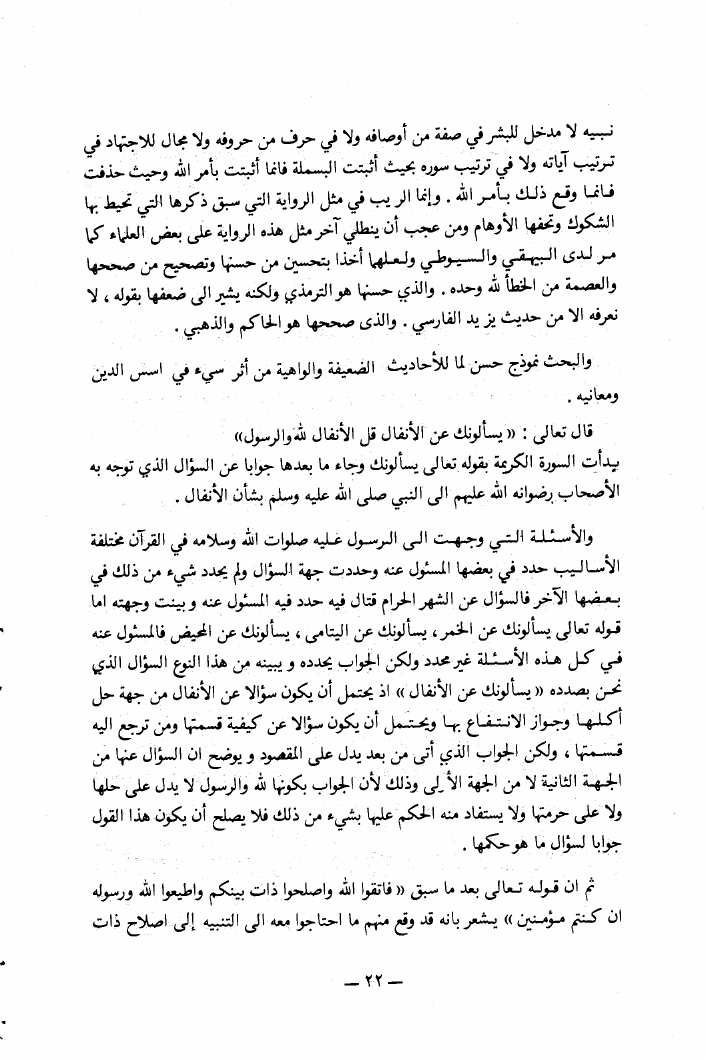 نبيه لا مدخل للبشر في صفة من أوصافه ولا في حرف من حروفه ولا مجال للاجتهاد في
ترتيب آياته ولا في ترتيب سوره بحيث أثبتت البسملة فانما أثبتت بأمر الله وحيث حذفت
فانما وقع ذلك بأمر الله . وإنما الريب في مثل الرواية التي سبق ذكرها التي تحيط بها
الشكوك وتحفها الأوهام ومن عجب أن ينطلي آخر مثل هذه الرواية على بعض العلماء كما
مر لدى البيهقي والسيوطي ولعلهما أخذا بتحسين من حسنها وتصحيح من صححها
والعصمة من الخطأ لله وحده . والذي حسنها هو الترمذي ولكنه يشير الى ضعفها بقوله ، لا
نعرفه الا من حديث يزيد الفارسي . والذى صححها هو الحاكم والذهبي .
والبحث نموذج حسن لما للأحاديث الضعيفة والواهية من أثر سيء في اسس الدين
ومعانيه .
قال تعالى : « يسألونك عن الأنفال قل الأنفال لله والرسول»
بدأت السورة الكريمة بقوله تعالى يسألونك وجاء ما بعدها جوابا عن السؤال الذي توجه به
الأصحاب رضوانه الله عليهم الى النبي صلى الله عليه وسلم بشأن الأنفال .
والأسئلة التي وجهت الى الرسول عليه صلوات الله وسلامه في القرآن مختلفة
الأساليب حدد في بعضها المسئول عنه وحددت جهة السؤال ولم يحدد شيء من ذلك في
بعضها الآخر فالسؤال عن الشهر الحرام قتال فيه حدد فيه المسئول عنه وبينت وجهته اما
قوله تعالى يسألونك عن الخمر ، يسألونك عن اليتامى ، يسألونك عن المحيض فالمسئول عنه
في كل هذه الأسئلة غير محدد ولكن الجواب يحدده ويبينه من هذا النوع السؤال الذي
نحن بصدده « يسألونك عن الأنفال » اذ يحتمل أن يكون سؤالا عن الأنفال من جهة حل
أكلها وجواز الانتفاع بها ويحتمل أن يكون سؤالا عن كيفية قسمتها ومن ترجع اليه
قسمتها ، ولكن الجواب الذي أتى من بعد يدل على المقصود ويوضح ان السؤال عنها من
الجهة الثانية لا من الجهة الأولى وذلك لأن الجواب بكونها لله والرسول لا يدل على حلها
ولا على حرمتها ولا يستفاد منه الحكم عليها بشيء من ذلك فلا يصلح أن يكون هذا القول
جوابا لسؤال ما هو حكمها .
ثم ان قوله تعالى بعد ما سبق « فاتقوا الله واصلحوا ذات بينكم واطيعوا الله ورسوله
ان كنتم مؤمنين » يشعر بانه قد وقع منهم ما احتاجوا معه الى التنبيه إلى اصلاح ذات
— ٢٢ —